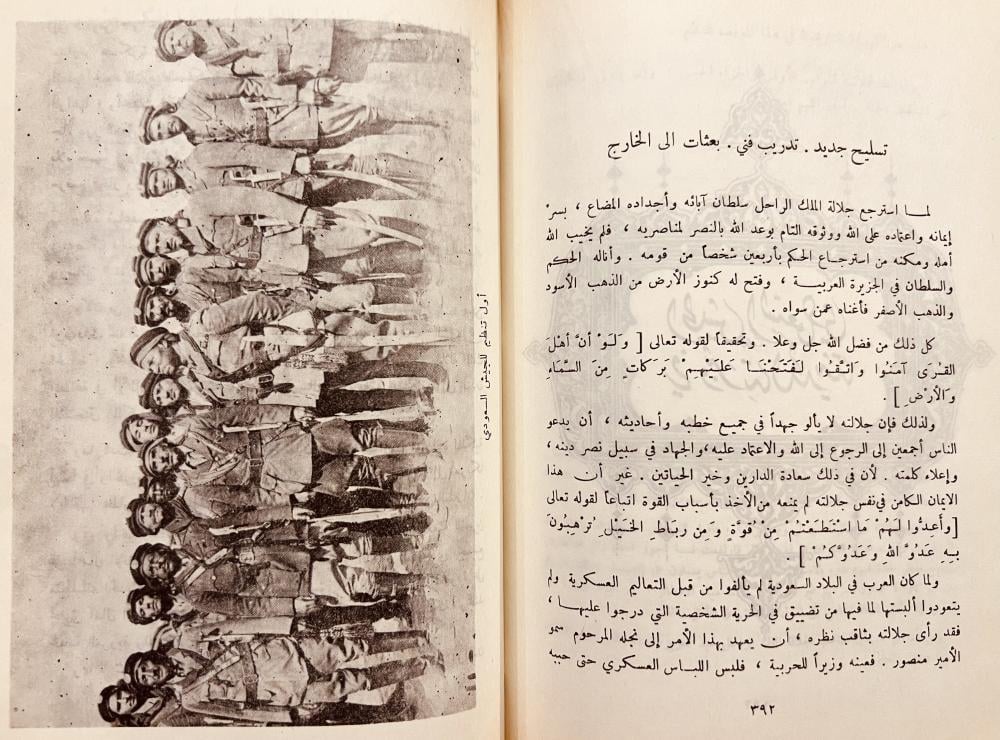 تسليح جديد . تدريب فني . بعثات الى الخارج
لمـا استرجع جلالة الملك الراحل سلطان آبائه وأجداده المضاع ، بسرّ
إيمانه واعتماده على الله ووثوقه التام بوعد الله بالنصر لمناصريه ، فلم يخيب الله
أمله ومكنه من استرجـاع الحكم بأربعين شخصاً من قومه . وأناله الحكم
والسلطان في الجزيرة العربيـــة ، وفتح له كنوز الأرض من الذهب الأسود
والذهب الأصفر فأغناه عمن سواه .
كل ذلك من فضل الله جل وعلا . وتحقيقاً لقوله تعالى [ وَلَـوْ أنَّ أهْلَ
القُـرَى آمَنُـوا وَاتـَّقُـوا لَـفَـتَحْـنَـا عَلَـيْهِـمْ بَـرَكَاتٍ مِنَ السَّمَاءِ
وَالأرْضِ ] .
ولذلك فإن جلالته لا يألو جهداً في جميع خطبه وأحاديثه ، أن يدعو
الناس أجمعين إلى الرجوع إلى الله والاعتماد عليه،والجهاد في سبيل نصر دينه،
وإعلاء كلمته . لأن في ذلك سعادة الدارين وخير الحياتين . غير أن هذا
الايمان الكامن في نفس جلالته لم يمنعه من الأخذ بأسباب القوة اتباعاً لقوله تعالى
[وَأعِدُّوا لَـهُمْ مَا اسْتَطَـعْتُـمْ مِنْ قُوَّةٍ وَمِن رِبـَاطِ الخَـيْلِ تُرْهِبُونَ
بِـهِ عَدُوَّ اللهِ وَعَدُوَّكُـمْ ] .
ولما كان العرب في البلاد السعودية لم يألفوا من قبل التعاليم العسكرية ولم
يتعودوا ألبستها لما فيها من تضييق في الحرية الشخصية التي درجوا عليهـا ،
فقد رأى جلالته بثاقب نظره ، أن يعهد بهذا الأمر إلى نجله المرحوم سمو
الأمير منصور . فعينه وزيراً للحربية ، فلبس اللباس العسكري حتى حببه
٣٩٢
أول تنظيم للجيش السعودي